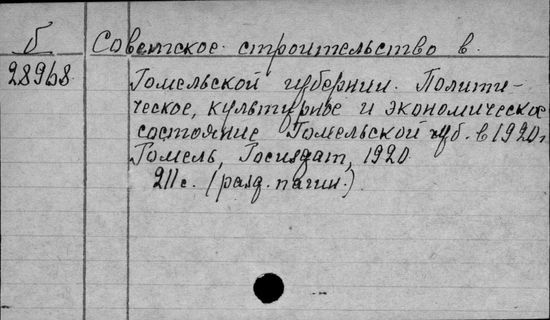 б
Советское строительство в
28968
Гомельской губернии. Полити-
ческое, культурное и экономическое
состояние Гомельской губ. в 1920 г.
Гомель, Госиздат, 1920.
211 с. (разд. пагин.)